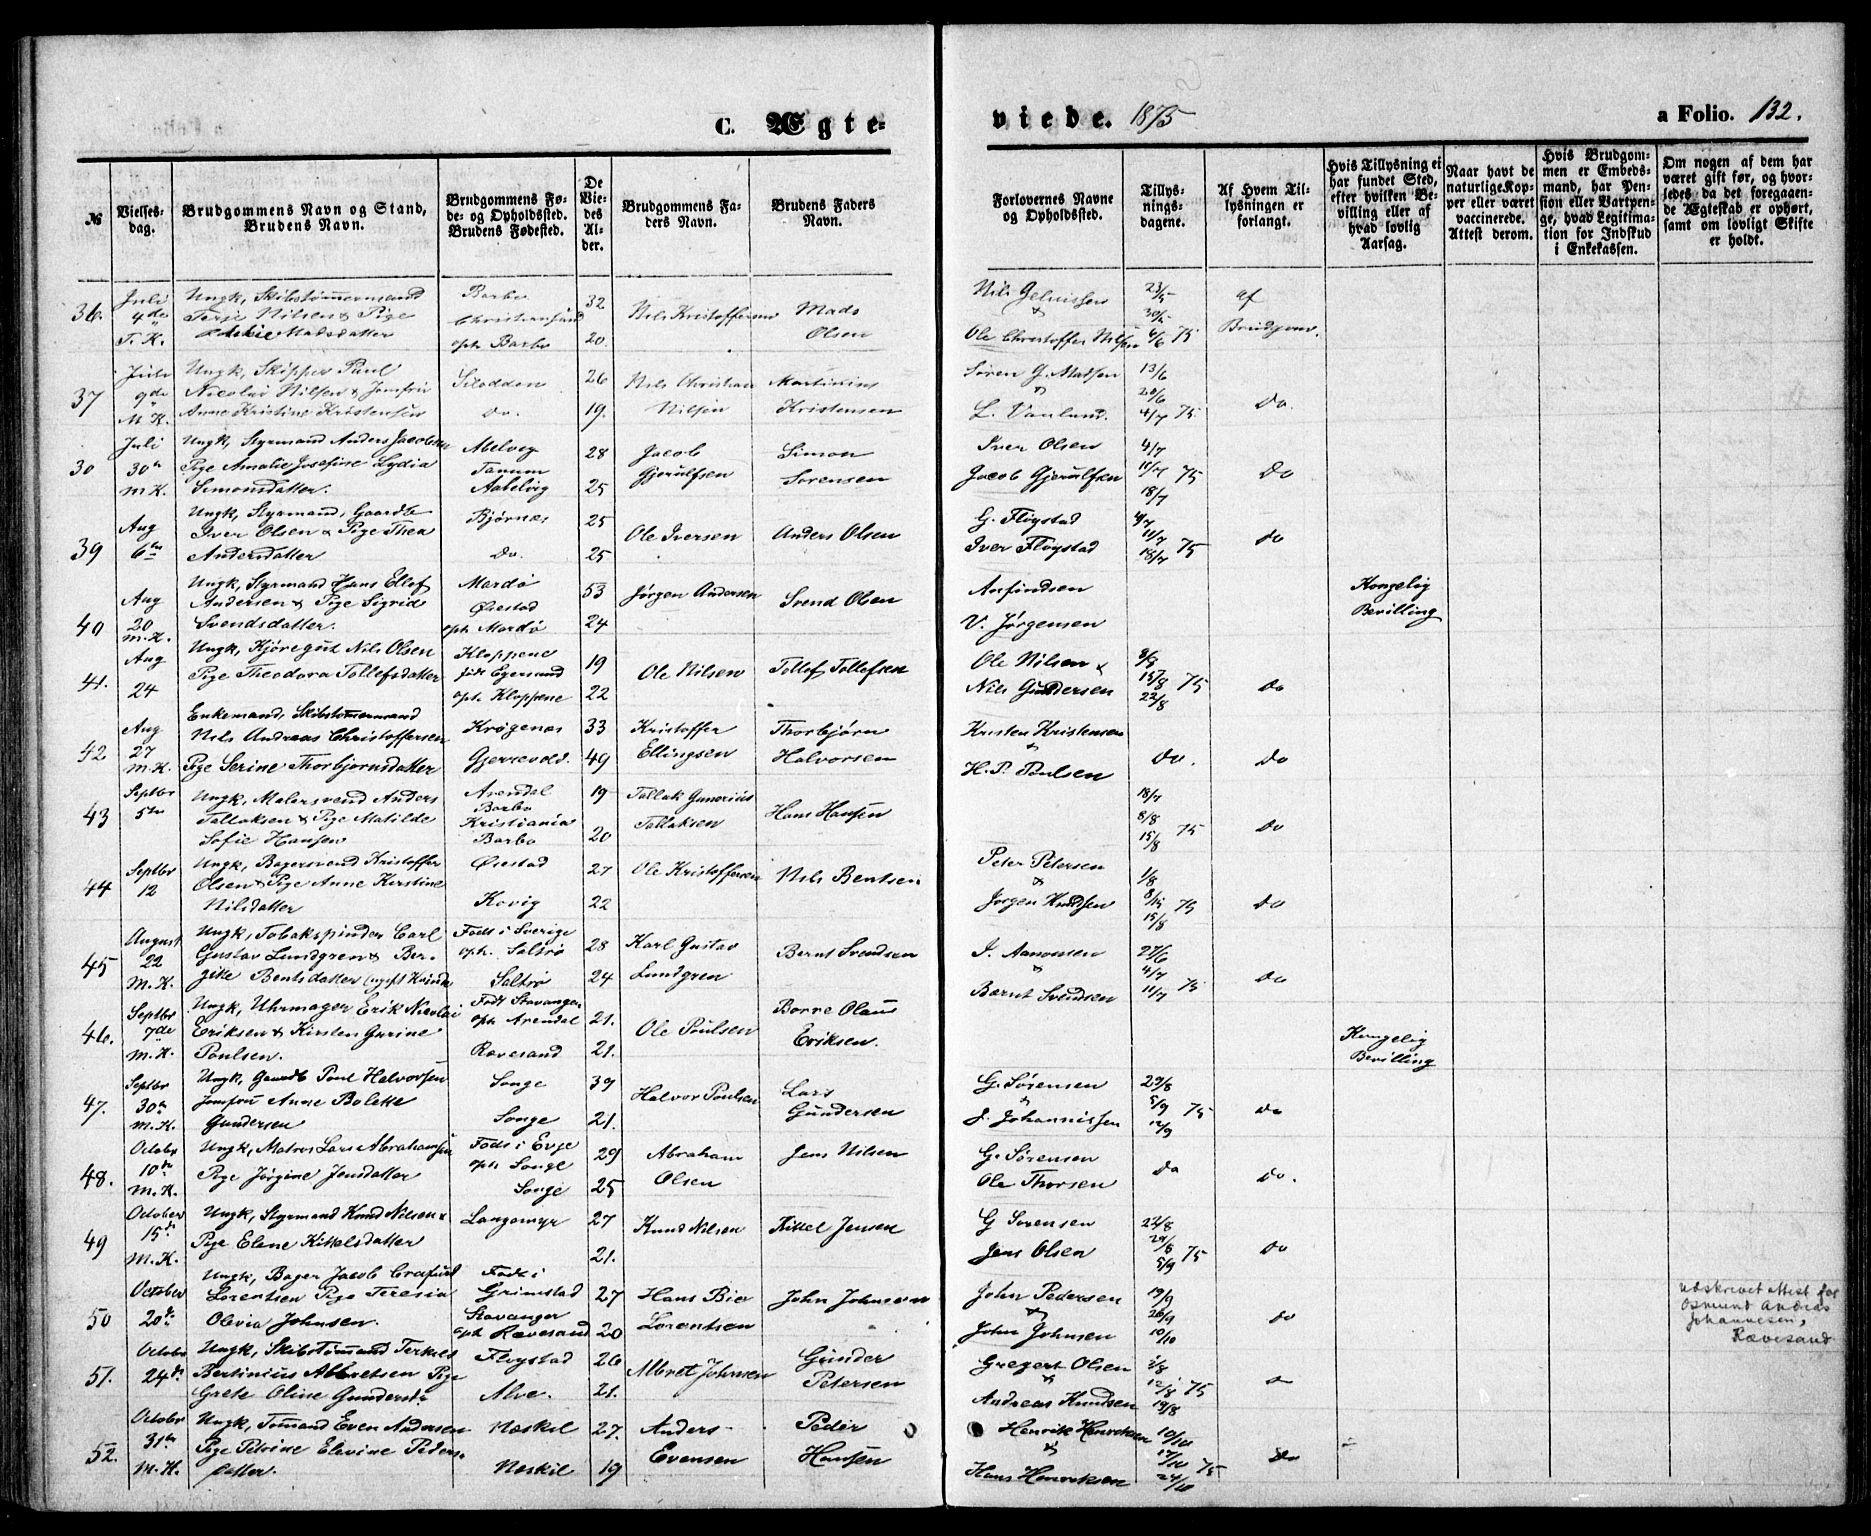 C. Ægte-
viede. 1875
a Folio. 132.
№
Vielses-
dag.
Brudgommens Navn og Stand,
Brudens Navn.
Brudgommens Fø-
de- og Opholdssted.
Brudens Fødested.
De
Vie-
des
Al-
der.
Brudgommens Fa-
ders Navn.
Brudens Faders
Navn.
Forlovernes Navne
og Opholdssted.
Tillys-
nings-
dagene.
Af Hvem Til-
lysningen er
forlangt.
Hvis Tillysning ei
har fundet Sted,
efter hvilken Be-
villing eller af
hvad lovlig
Aarsag.
Naar havt de
naturlige Kop-
per eller været
vaccinerede.
Attest derom.
Hvis Brudgom-
men er Embeds-
mand, har Pen-
sion eller Vartpen-
ge, hvad Legitima-
tion for Indskud
i Enkekassen.
Om nogen af dem har
været gift før, og hvor-
ledes da det foregaaen-
de Ægteskab er ophørt,
samt om lovligt Skifte
er holdt.
36. Juli 4de T. K.
Ungk, Skibstømmermand
Terje Nilsen & Pige
Madsdatter
Barbo
Christiansand
oph Barbo
32
20.
Nils Kristoffersen
Mads
Olsen
Nils
&
Ole Christoffer Nilsen
23/5
30/5
6/6 75
af
Brudgom.
37 Juli 9de M K.
Ungk, Skipper Paul
Nicolai Nilsen & Jomfru
Anne Kristine Kristensen
Staddon
do.
26
19.
Nils Christian
Nilsen
Martinius
Kristensen
Søren G. Madsen
&
L. Vanlund.
13/6
20/6
4/7 75
do.
30 Juli 30te M.K.
Ungk, Styrmand Anders Jacobsen
Pige Amalie Josefine Lydia
Simonsdatter.
Abelvig
Tanum
Aabelvig
28
25
Jacob
Gjerulfsen
Simon
Sorensen
Iver Olsen
Jacob Gjerulfsen
4/7
11/7 75
18/7
Do
39 Aug 6te
Ungk, Styrmand, Gaardb
Iver Olsen & Pige Thea
Andersdatter
Bjørnæs
do.
25
25
Ole Iversen
Anders Olsen
G. Fløystad
Iver Fløystad
4/7
11/7
18/7 75
do
40 Aug 20 M.K.
Ungk, Styrmand Hans Ellef
Andersen & Pige Sigrid
Svendsdatter.
Mardø
Øiestad
oph Mardø
53
24
Jørgen Andersen
Svend Olsen
Anfindsen
V. Jørgensen
Kongelig
Bevilling
41. Aug 24
Ungk, Kjøregut Nils Olsen
Pige Theodora Tollefsdatter
Kloppene
født Egersund
oph. Kloppene
19
22
Ole Nilsen
Tollef Tollefsen
Ole Nilsen &
Nils Gundersen
8/8
15/8 75
22/8
do
42 Aug 27 M.K.
Enkemand, Skibstømmermand
Nils Andreas Christoffersen
Pige Serine Thorbjornsdatter
Krøgenæs
Gjerrevold.
33
49
Kristoffer
Ellingsen
Thorbjørn
Halvorsen
Kristen Kristensen
&
H. P. Poulsen
do.
do
43 Septbr 5te
Ungk, Malersvend Anders
Tallaksen & Pige Matilde
Sofie Hansen
Arendal
Barbo
Kristiania
Barbo
19
20
Tallak Gunerius
Tallaksen
Hans Hansen
18/7
8/8
15/8 75
do
44 Septbr 12
Ungk, Bagersvend Kristoffer
Olsen & Pige Anne Kirstine
Nilsdatter
Øiestad
Kovig
27
22
Ole Kristoffersen
Nils Bentsen
Peter Petersen
&
Jørgen Knudsen
1/8
75
15/8
do
45 August 22 M. K.
Ungk, Tobakspinder Carl
Gustav Lundgren & Ber-
gite Bentsdatter
Født i Sverige
oph. Saltrø
Saltrø
28
24
Karl Gustav
Lundgren
Bernt Svendsen
I. Aanonsen
&
Bærnt Svendsen
27/6
4/7
11/7 75
do
46. Septbr 7de M. K.
Ungk, Uhrmager Erik Nicolai
Eriksen & Kirsten Gurine
Poulsen.
Født Stavanger
oph Arendal
Rævesand
21.
21.
Ole Poulsen
Borre Olaus
Eriksen.
Kongelig
Bevilling
47. Septbr 30te M. K.
Ungk, Gaardb Poul Halvorsen
Jomfru Anne Bolette
Gundersen
Songe
Songe
39
21.
Halvor Poulsen
Lars
Gundersen
G. Sørensen
&
J. Johannissen
29/8
5/9 75
12/9
do
48. Octobr 10de M. K.
Ungk, Matros Lars Abrahamsen
Pige Jørgine Jensdatter
Født i Evje
oph Songe
Songe
29
25
Abraham
Olsen
Jens Nilsen
G. Sørensen
Ole Thorsen
do
do.
49 October 15de M. K.
Ungk, Styrmand Knud Nilsen &
Pige Elene Kittelsdatter
Langemyr
27
21.
Knud Nilsen
Kittel Jensen
G Sørensen
Jens Olsen
22/8
29/8
5/9 75
do
50 October 20de
Ungk, Bager Jacob Crafurd
Lorentsen Pige Teresia
Olivia Johnsen.
Født i
Grimstad
Stavanger
oph Rævesand
27
20
Hans Bie
Lorentsen
John Johnsen
John Pedersen
&
John Johnsen
19/9
26/9
10/10
do
Udskrevet Attest for
Osmund Andreas
Johannesen,
Rævesand
51. Octobr 24de
Ungk, Skibstømmand Terkel
Bertinius Albretsen Pige
Grete Oline Gundersd
Fløystad
Alve.
26
21.
Albret Johnsen
Gunder
Petersen
Gregert Olsen
&
Andreas Knudsen
1/8
75
52. Octobr 31te M. K.
Ungk, Tømmand Even Andersen
Pige Petrine Elevine Peders-
datter.
Næskil
Neskil
27.
19
Anders
Evensen
Peder
Hansen
Henrik Henriksen
&
Hans Henriksen
10/10
17/10 75
24/10
do